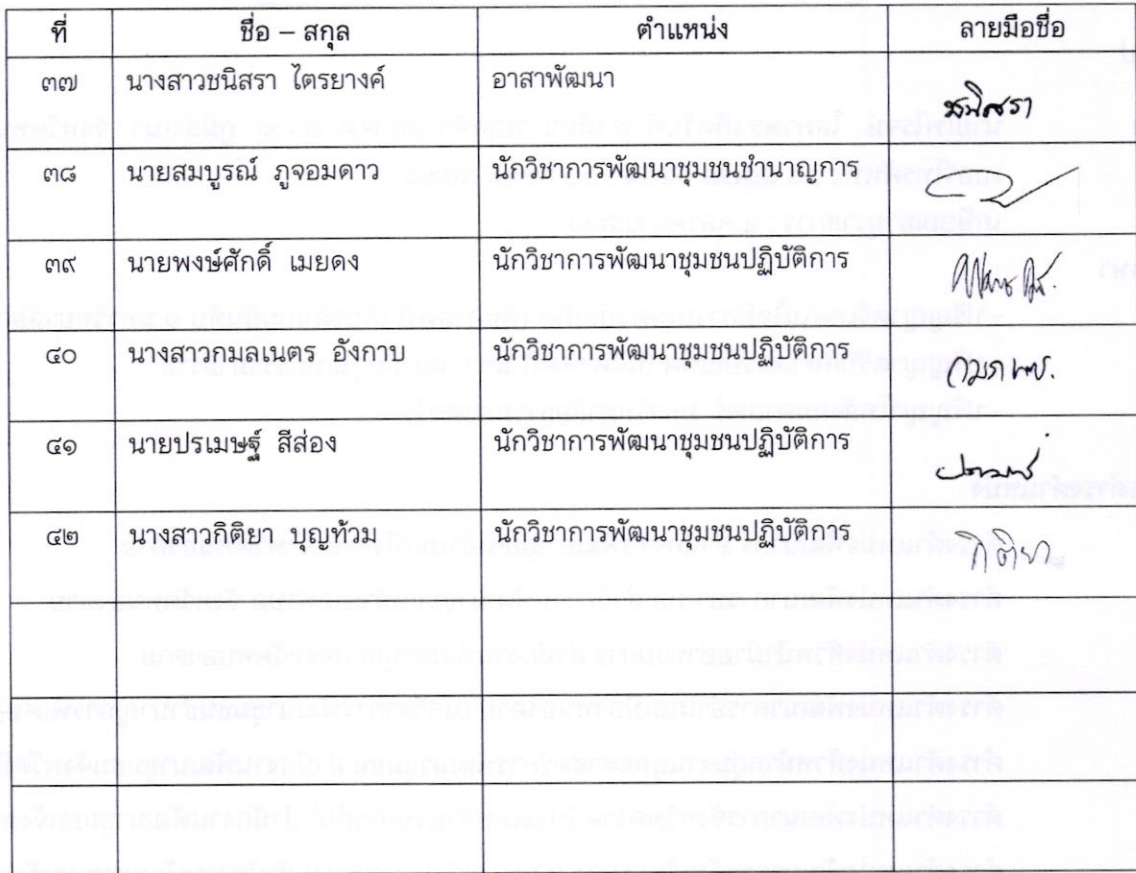 ที่ ชื่อ – สกุล ตำแหน่ง ลายมือชื่อ
๓๗ นางสาวชนิสรา ไตรยางค์ อาสาพัฒนา ชนิสรา
๓๘ นายสมบูรณ์ ภูจอมดาว นักวิชาการพัฒนาชุมชนชำนาญการ
๓๙ นายพงษ์ศักดิ์ เมยดง นักวิชาการพัฒนาชุมชนปฏิบัติการ
๔๐ นางสาวกมลเนตร อังกาบ นักวิชาการพัฒนาชุมชนปฏิบัติการ
๔๑ นายปรเมษฐ์ สีส่อง นักวิชาการพัฒนาชุมชนปฏิบัติการ
๔๒ นางสาวกิติยา บุญท้วม นักวิชาการพัฒนาชุมชนปฏิบัติการ กิติยา